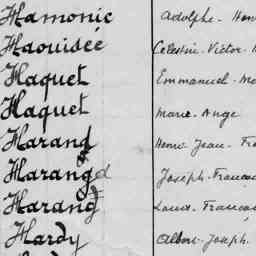 Hamonic Adolphe - Hen
Haouisée Celestin - Victor -
Haquet Emmanuel - Ma
Haquet Marie - Ange
Harand Henri - Jean - Fra
Harang Joseph - François
Harang Louis - François
Hardy Albert - Joseph.